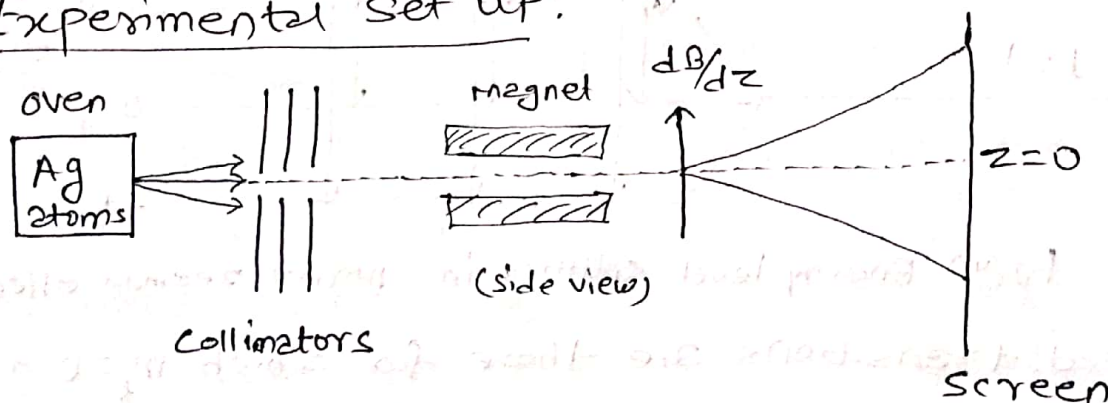 Experimental Set up.
oven
Ag
atoms
Collimators
magnet
(side view)
dB/dz
z=0
Screen